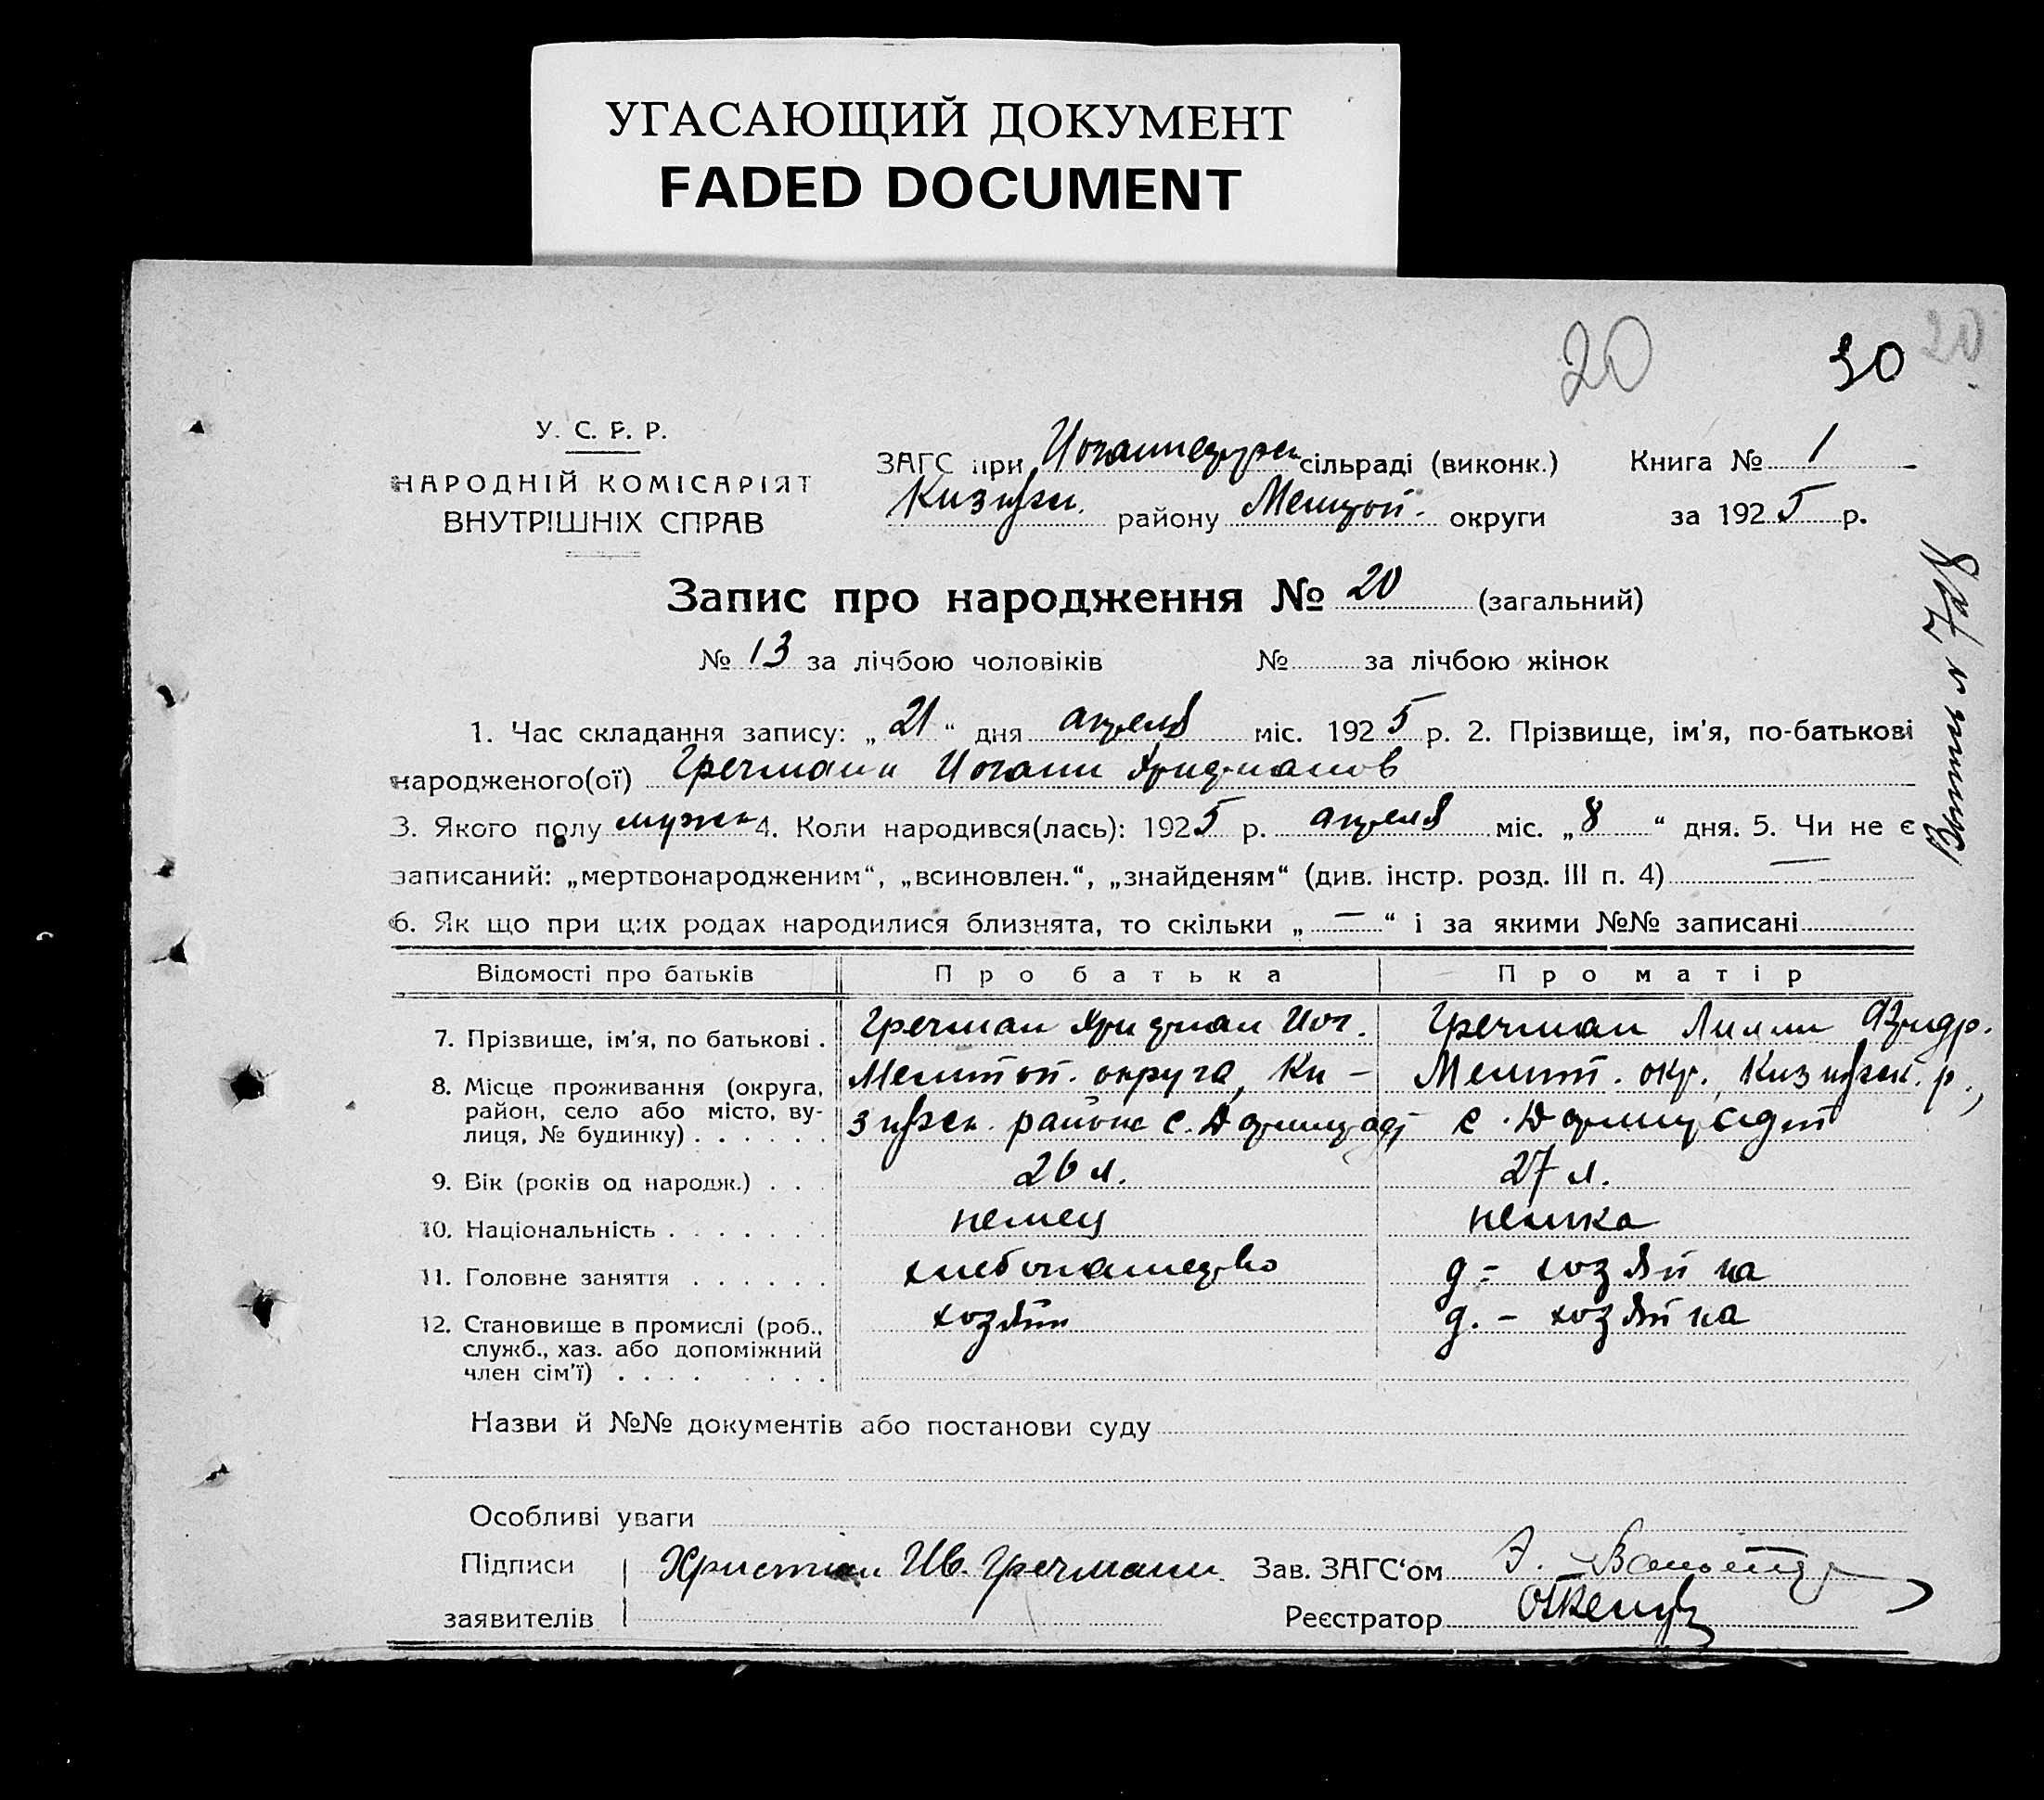 УГАСАЮЩИЙ ДОКУМЕНТ
FADED DOCUMENT
20 30 20
У. С. Р. Р.
НАРОДНІЙ КОМІСАРІЯТ
ВНУТРІШНІХ СПРАВ
ЗАГС при сільраді (виконк.) Книга № 1
району округи за 1925 р.
Запис про народження № 20 (загальний)
№ 13 за лічбою чоловіків № за лічбою жінок
1. Час складання запису: „21“ дня апреля міс. 1925 р. 2. Прізвище, ім'я, по-батькові
народженого(ої) Гречманн Иоганн Християнов
3. Якого полу мужск 4. Коли народився(лась): 1925 р. апреля міс. „8“ дня. 5. Чи не є
записаний: „мертвонародженим“, „всиновлен.“, „знайденям“ (див. інстр. розд. III п. 4) —
6. Як що при цих родах народилися близнята, то скільки „—“ і за якими №№ записані
Відомості про батьків Про батька Про матір
7. Прізвище, ім'я, по батькові . Гречман Християн Иог. Гречман Лилли
8. Місце проживання (округа, Мелитоп. округа, Ки- Мелит. окр.,
район, село або місто, ву- района с. с.
лиця, № будинку) . . . . . .
9. Вік (років од народж.) . . . 26 л. 27 л.
10. Національність . . . . . . . немец немка
11. Головне заняття . . . . . . хлебопашество д - хозяйка
12. Становище в промислі (роб., хозяин д. - хозяйка
служб., хаз. або допоміжний
член сім'ї) . . . . . . . .
Назви й №№ документів або постанови суду
Особливі уваги
Підписи Христиан Ив. Гречманн Зав. ЗАГС'ом
заявителів Реєстратор